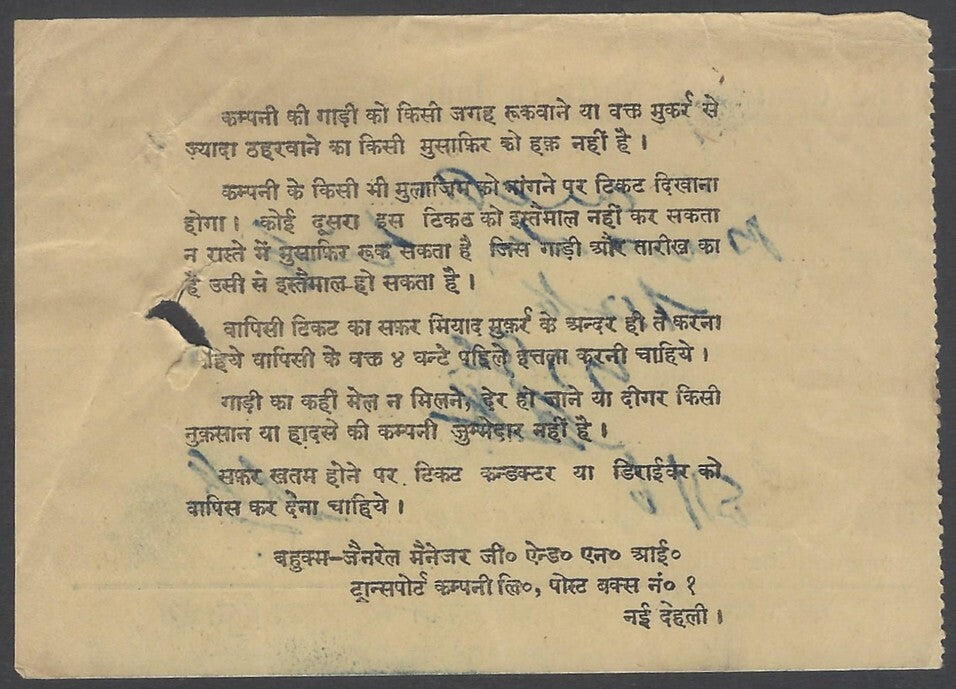 कम्पनी की गाड़ी को किसी जगह रूकवाने या वक्त मुकर्र से
ज़्यादा ठहरवाने का किसी मुसाफ़िर को हक़ नहीं है ।
कम्पनी के किसी भी मुलाजिम को मांगने पर टिकट दिखाना
होगा । कोई दूसरा इस टिकट को इस्तैमाल नहीं कर सकता
न रास्ते में मुसाफ़िर रूक सकता है जिस गाड़ी और तारीख का
है उसी से इस्तैमाल हो सकता है ।
वापिसी टिकट का सफ़र मियाद मुकर्र के अन्दर ही तै करना
वापिसी के वक्त ४ घन्टे पहिले इत्तला करनी चाहिये ।
गाड़ी का कहीं मेल न मिलने, देर हो जाने या दीगर किसी
नुक़सान या हादसे की कम्पनी जुम्मेदार नहीं है ।
सफ़र खतम होने पर टिकट कन्डक्टर या डिराईवर को
वापिस कर देना चाहिये ।
बहुक्म–जैनरेल मैनेजर जी० ऐन्ड० एन० आई०
ट्रान्सपोर्ट कम्पनी लि०, पोस्ट बक्स नं० १
नई देहली ।